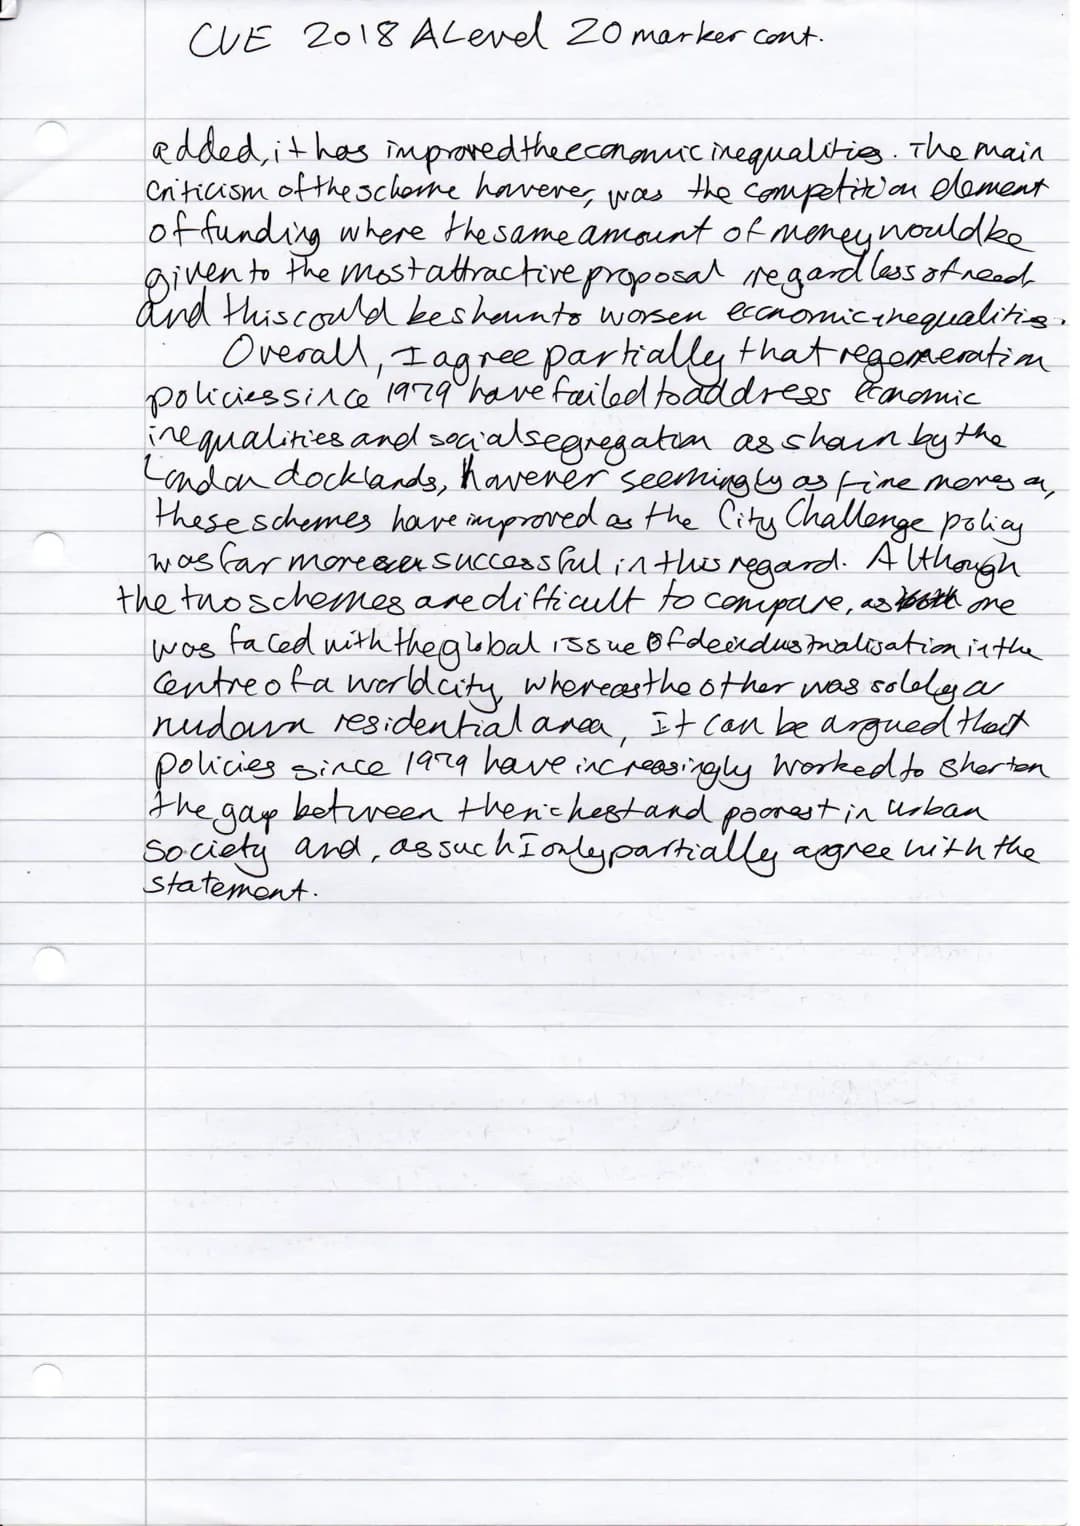 CUE 2018 A Level 20 marker cont.
added, it has improved the economic inequalities. The main
criticism of the scheme however, was the competition element
of funding where the same amount of money would be
given to the most attractive proposal regardless of need
and this could be shown to worsen economic inequalities.
Overall, I agree partially that regeneration
policies since 1979 have failed to address economic
inequalities and social segregation as shown by the
London docklands, however seemingly as time moves on,
these schemes have improved as the City Challenge policy
was far more successful in this regard. Although
the two schemes are difficult to compare, as one
was faced with the global issue of deindustrialisation in the
centre of a world city, whereas the other was solely a
rundown residential area, It can be argued that
policies since 1979 have increasingly worked to shorten
the gap between the richest and poorest in urban
society and, as such I only partially agree with the
statement.